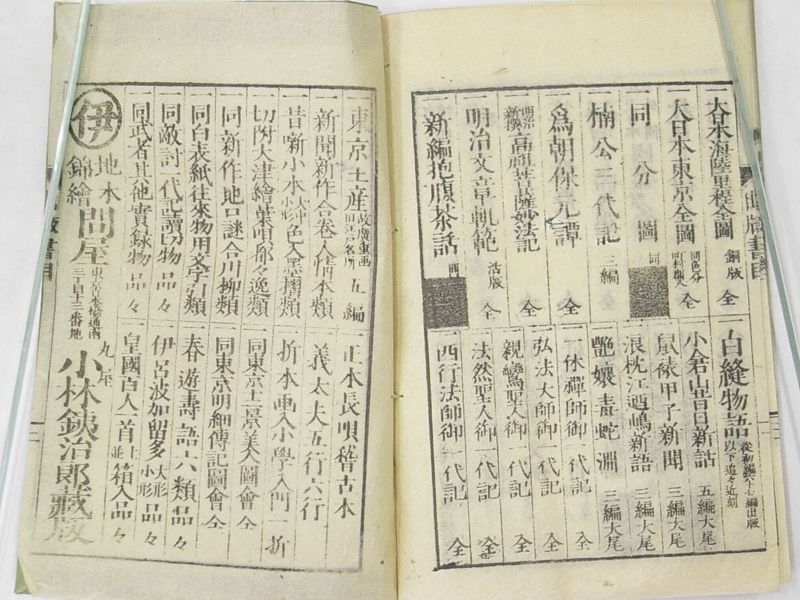 一大日本海陸里程全圖 銅版
一大日本東京全圖 全
一同分圖 同
一楠公三代記 三編
一為朝保元譚 全
一高祖菩薩妙法記 全
一明治文章軌範 活版 全
一新編抱腹茶話
一白縫物語 以下追々近刻
一小倉山青樹新話 五編大尾
一鼠裱甲子新聞 三編大尾
一浪枕江廼嶋新語 三編大尾
一艷孃毒蛇淵 三編大尾
一一休禪師御一代記 全
一弘法大師御一代記 全
一親鸞聖人御一代記 全
一法然聖人御一代記 全
一西行法師御一代記 全
一東京土産 故廣重画 五編
一新聞新作合卷人情本類
一昔噺小本 大中小形 色入墨摺類
一切附大津繪葉唄都々逸類
一同新作地口謎合川柳類
一同白表紙往來物用文字引類
一同敵討一代記讀切物 品々
一同武者其他實録物 品々
一正本長唄稽古本
一義太夫五行六行
一折本画入小學入門一折
一同東京土京美人圖會 全
一同東京明細傳記圖會 全
一春遊壽語六類品々
一伊呂波加留多 大形小形 品々
一皇國百人一首 上並 箱入品々
伊
地本
錦繪
問屋
東京日本橋通油
三丁目十三番地
丸屋
小林鉄治郎藏版